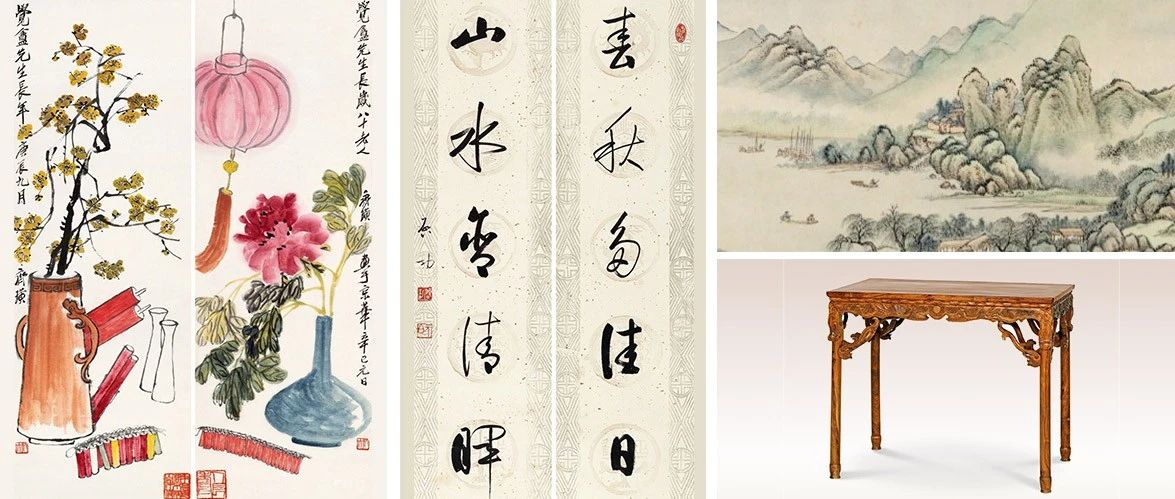 覺盦先生長年 庚辰九月 齊璜
覺盦先生長歲 八十老人
齊璜 畫于京華 辛巳元日
春秋多佳日
山水含清暉
启功